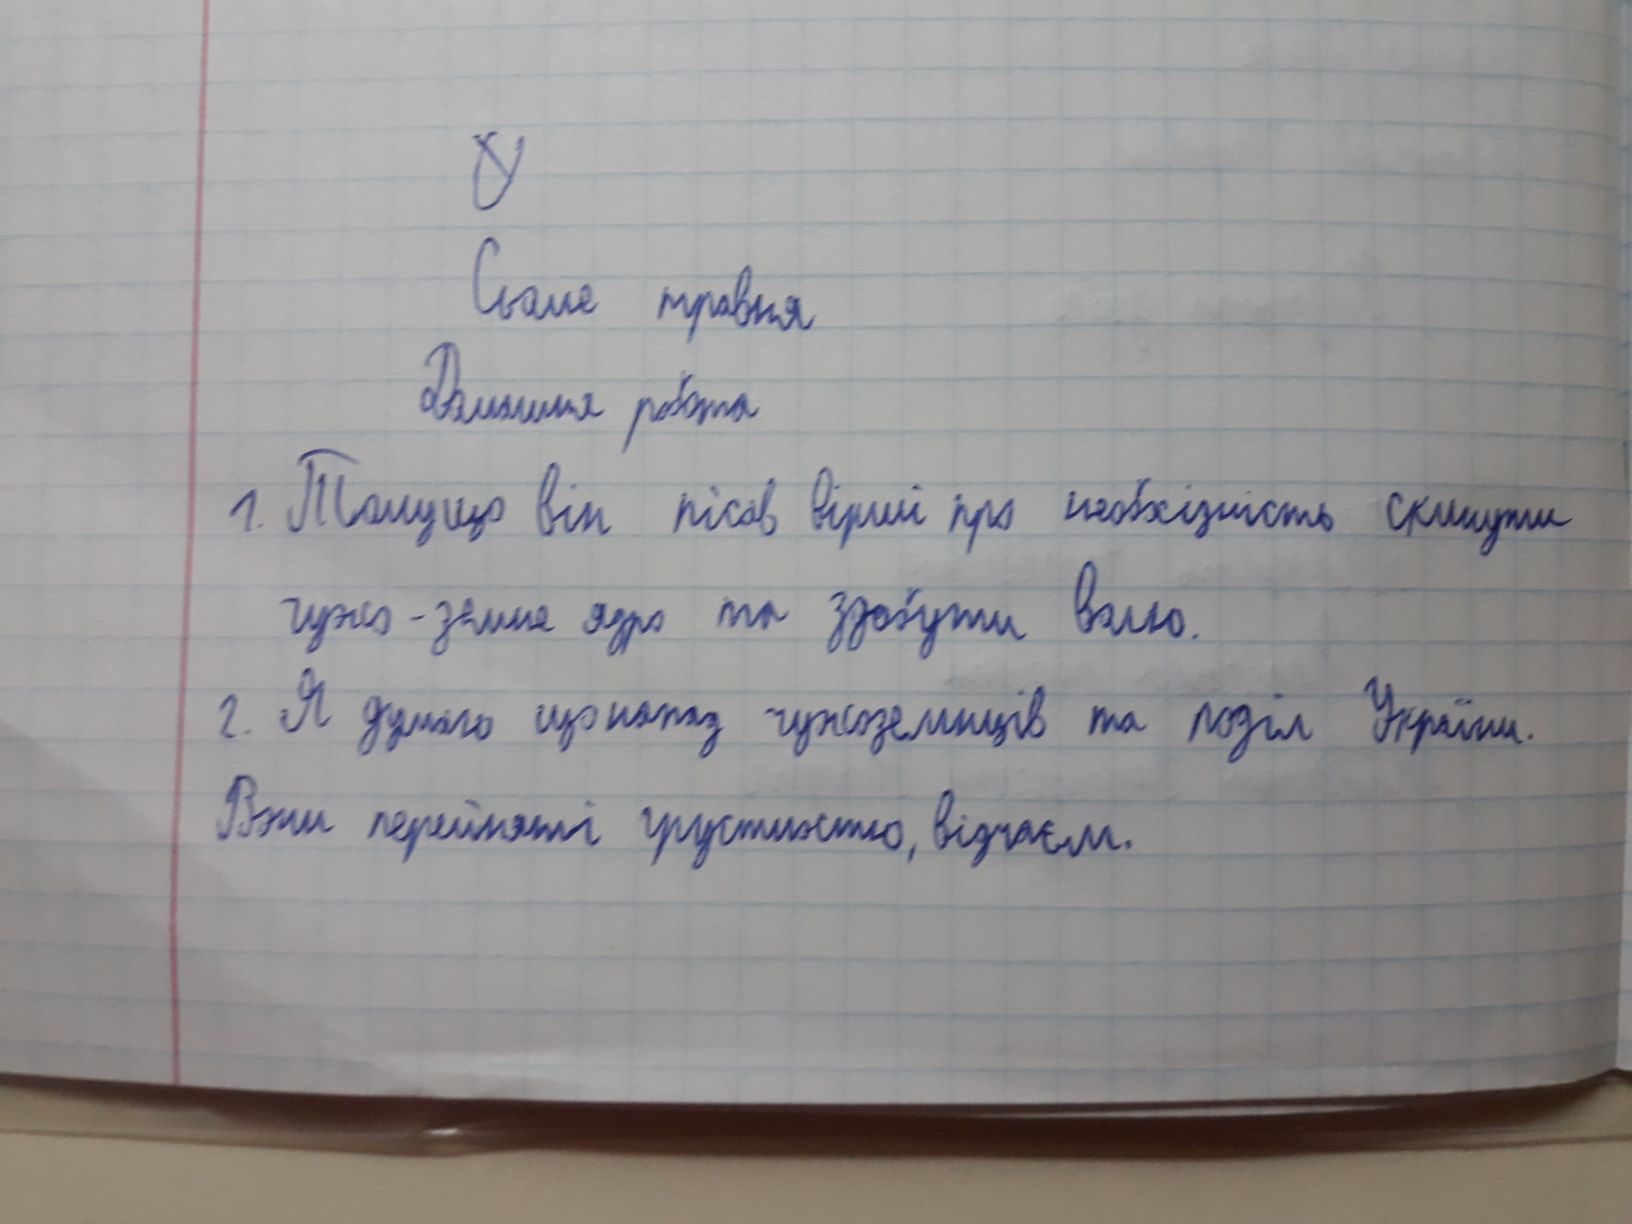 Сьоме травня
Домашня робота
1. Томущо він пісав вірші про необхізність скинути
чужо-земне ядро та здобути волю.
2. Я думаю що напад чужоземнців та поділ України.
Вони перейняті грустністю, відчаєм.